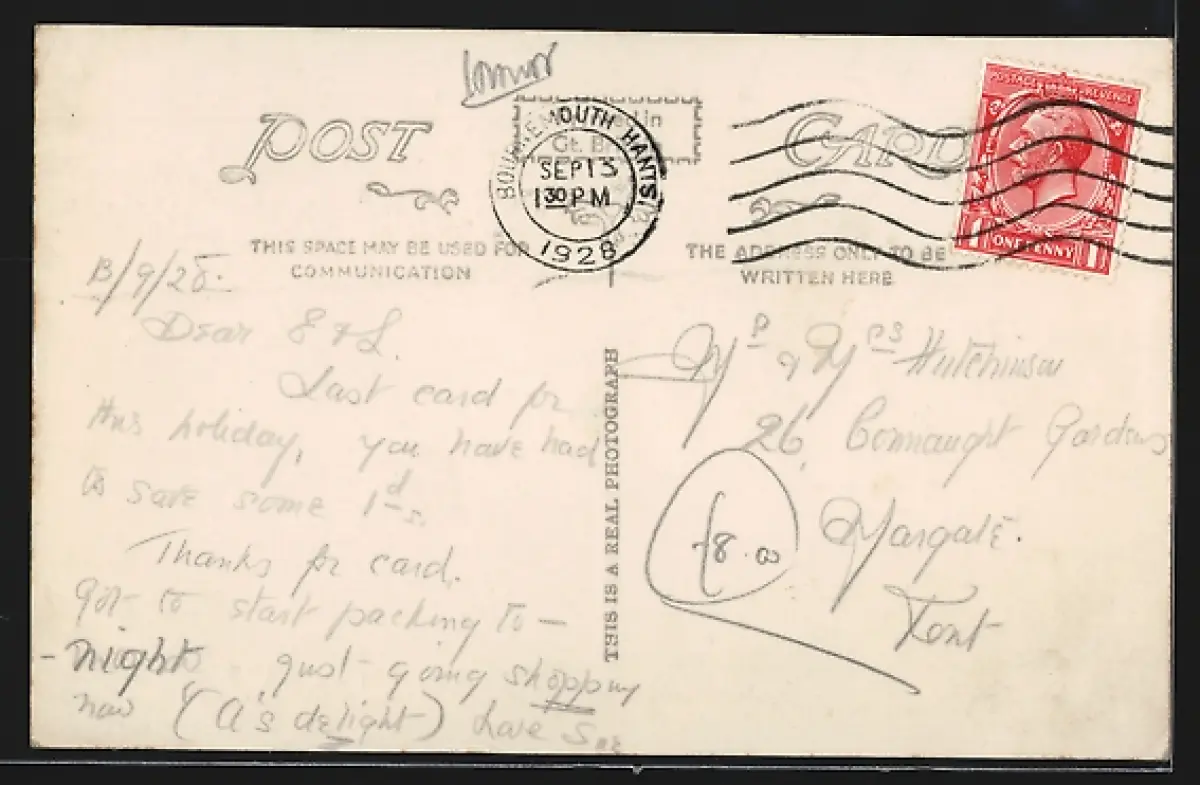 POST CARD
BOURNEMOUTH HANTS
SEP 13
1 30 PM
1928
POSTAGE REVENUE
1 ONE PENNY 1
THIS SPACE MAY BE USED FOR
COMMUNICATION
THE ADDRESS ONLY TO BE
WRITTEN HERE
THIS IS A REAL PHOTOGRAPH
13/9/28.
Dear E & L.
Last card for
this holiday, you have had
to save some 1ds.
Thanks for card.
Got to start packing to-
-night just going shopping
now (A's delight) Love
Mr & Mrs Hutchinson
26, Connaught Gardens
Margate.
Kent